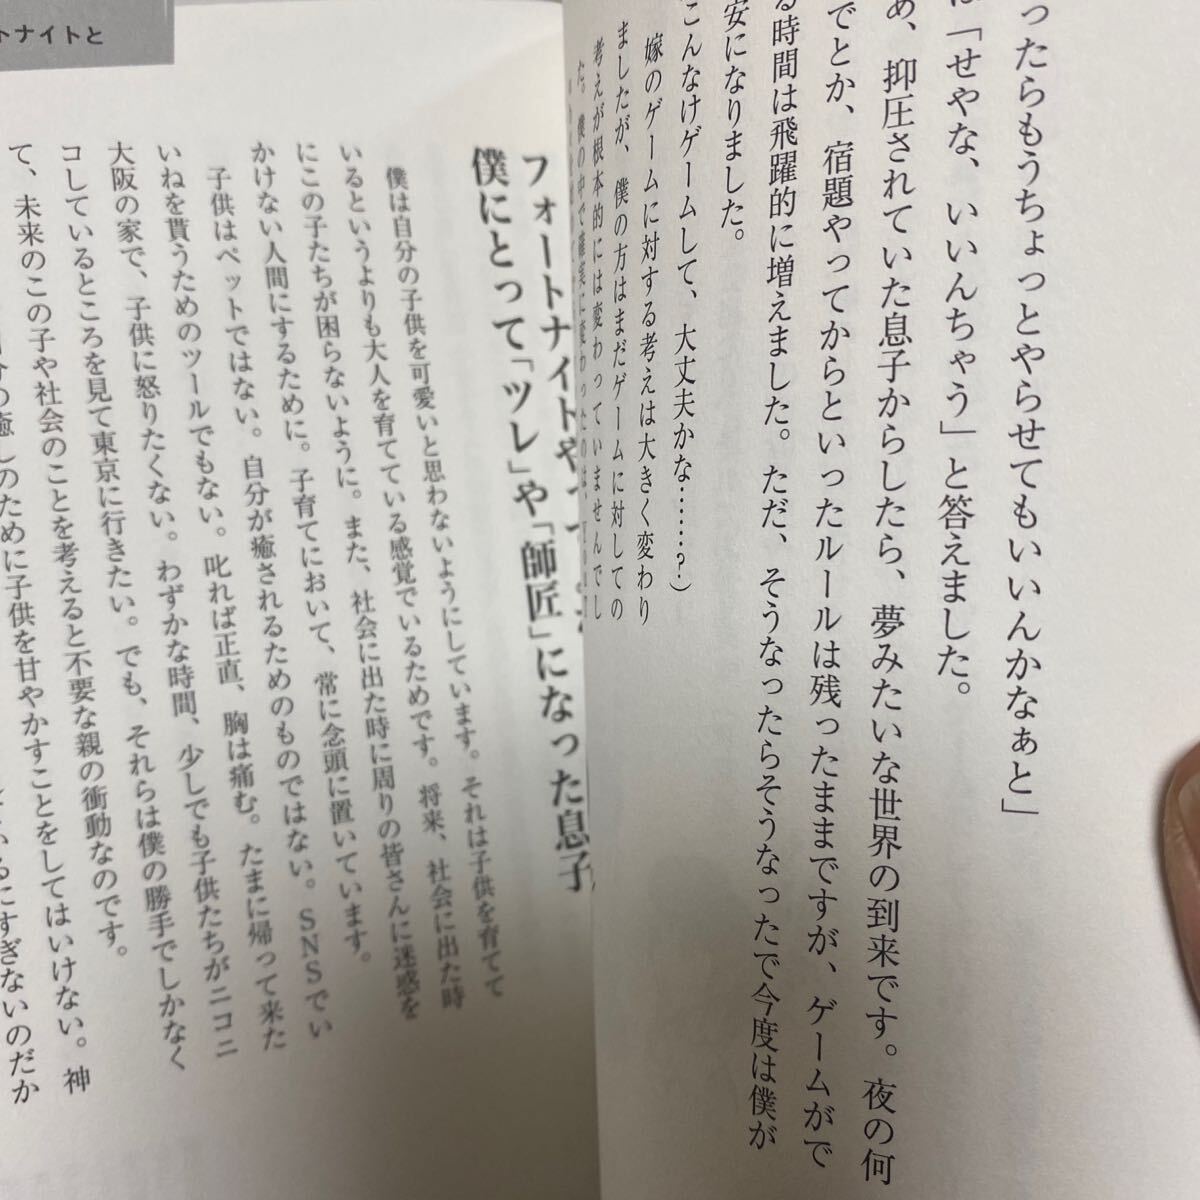 ったらもうちょっとやらせてもいいんかなぁと」
「せやな、いいんちゃう」と答えました。
あ、抑圧されていた息子からしたら、夢みたいな世界の到来です。夜の何
でとか、宿題やってからといったルールは残ったままですが、ゲームがで
る時間は飛躍的に増えました。ただ、そうなったらそうなったで今度は僕が
安になりました。
こんなけゲームして、大丈夫かな……？）
嫁のゲームに対する考えは大きく変わり
ましたが、僕の方はまだゲームに対しての
考えが根本的には変わっていませんでし
た。僕の中で確実に変わったのは、
トナイトと
フォートナイトや
僕にとって「ツレ」や「師匠」になった息子
僕は自分の子供を可愛いと思わないようにしています。それは子供を育てて
いるというよりも大人を育てている感覚でいるためです。将来、社会に出た時
にこの子たちが困らないように。また、社会に出た時に周りの皆さんに迷惑を
かけない人間にするために。子育てにおいて、常に念頭に置いています。
子供はペットではない。自分が癒されるためのものではない。SNSでい
いねを貰うためのツールでもない。叱れば正直、胸は痛む。たまに帰って来た
大阪の家で、子供に怒りたくない。わずかな時間、少しでも子供たちがニコニ
コしているところを見て東京に行きたい。でも、それらは僕の勝手でしかなく
て、未来のこの子や社会のことを考えると不要な親の衝動なのです。
の癒しのために子供を甘やかすことをしてはいけない。神
にすぎないのだか